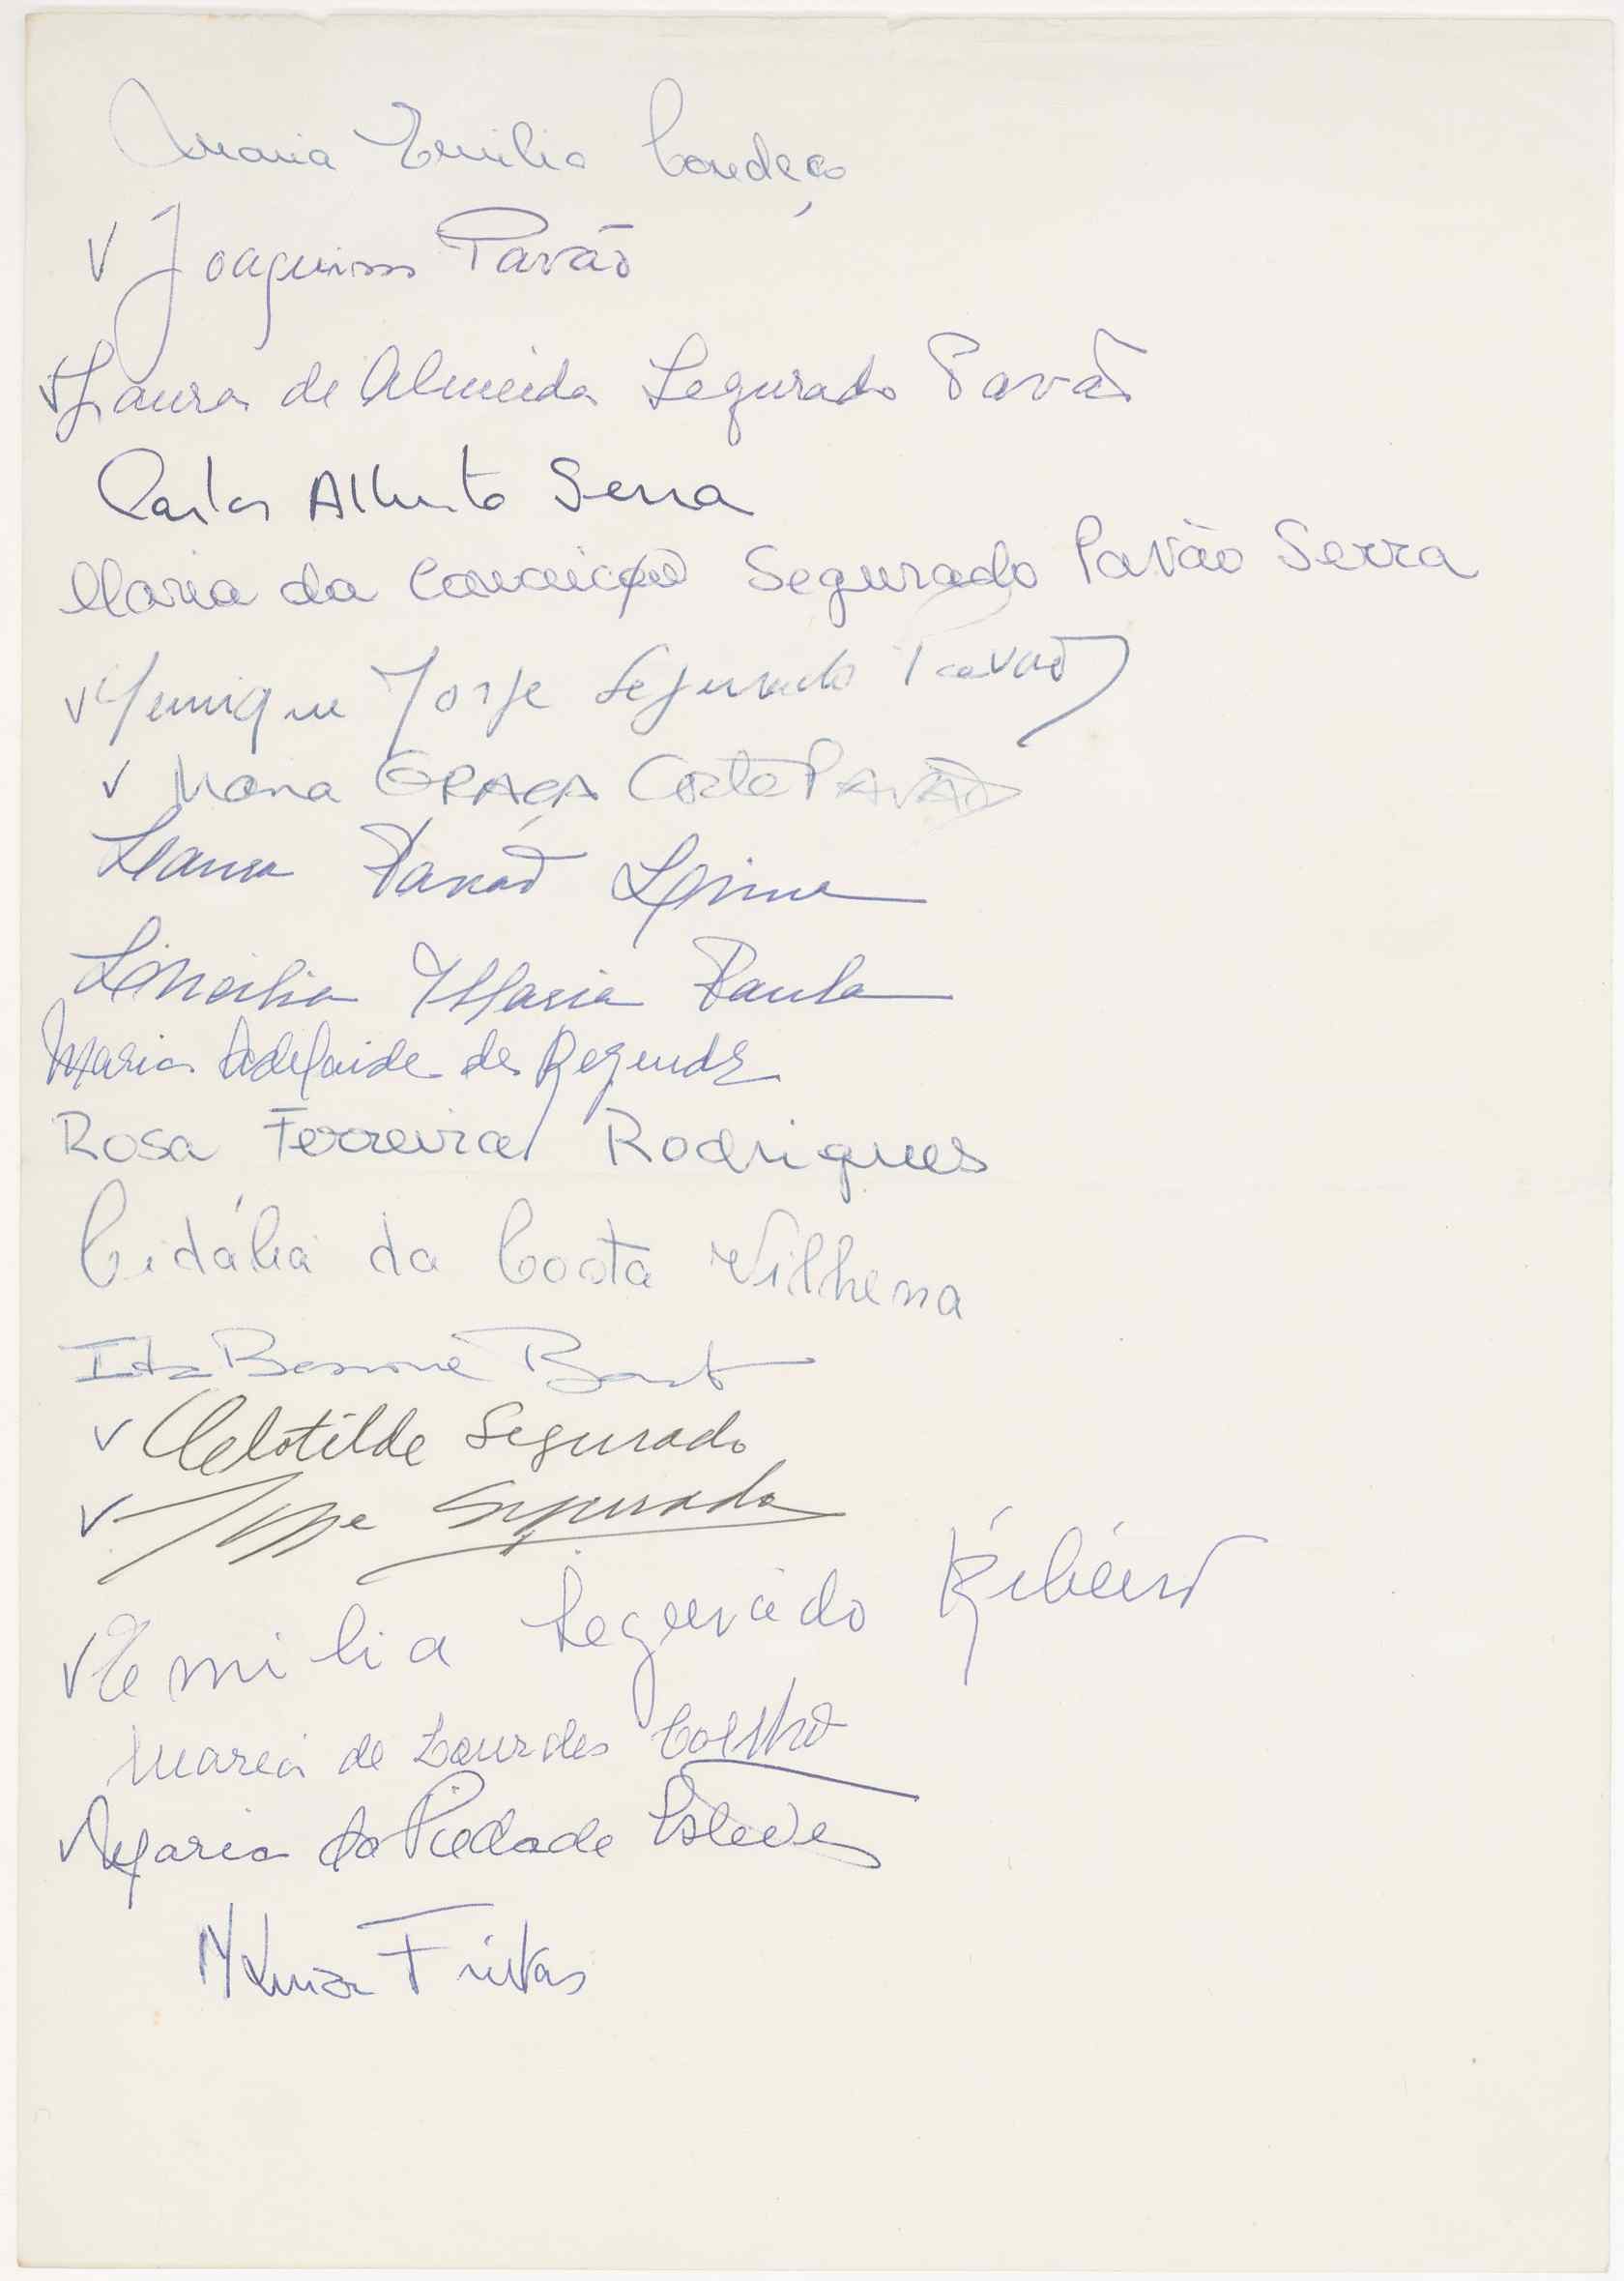 Maria Emilia Condeço
v Joaquim Pavão
v Laura de Almeida Segurado Pavão
Carlos Alberto Serra
Maria da Conceição Segurado Pavão Serra
v Henrique Jorge Segurado Pavão
v Maria GRAÇA Corte PAVÃO
Laura Pavão
Maria Paula
Maria Adelaide de Rezende
Rosa Ferreira Rodrigues
Cidália da Costa Vilhena
v Clotilde Segurado
v Jorge Segurado
v Emilia Segurado Ribeiro
Maria de Lourdes Coelho
v Maria da Piedade Esteves
M Luiza Freitas